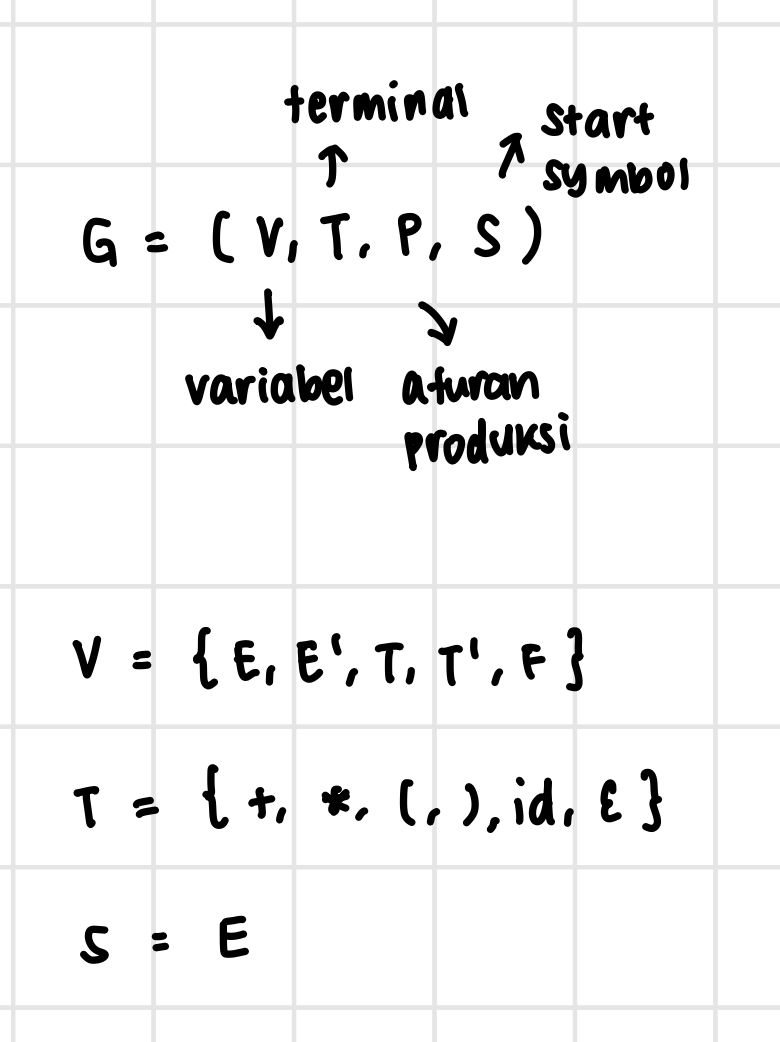 terminal
start
symbol
G = ( V, T, P, S )
variabel
aturan
produksi
V = { E, E', T, T', F }
T = { +, *, (, ), id, ε }
S = E